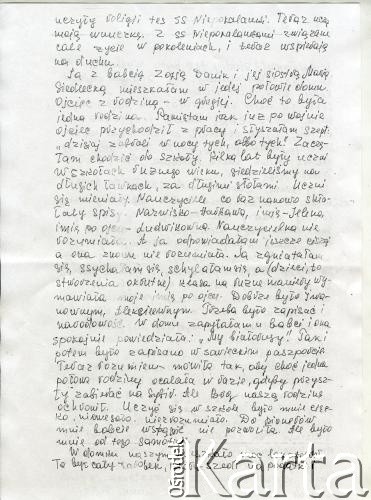 uczyły religii tes SS Niepokalanki. Teraz uczą
moją wnuczkę. Z SS Niepokalankami związane
całe życie w pokoleniach, i teraz wspierają
na duchu.
Ja z babcią Zosią Danik i jej siostrą Marią
Siedlecką mieszkałam w jednej połowie domu
Ojciec z rodziną - w drugiej. Choć to była
jedna rodzina. Pamiętam jak już po wojnie
ojciec przychodził z pracy i słyszałam szept:
„dzisiaj zabrali w nocy tych, albo tych". Zaczę-
łam chodzić do szkoły. Kilka lat były uczni
w szkołach różnego wieku, siedzieliśmy na
długich ławkach, za długimi stołami. Uczni
się mieniały. Nauczyciele co raz nanowo skła-
dały spisy. Nazwisko - , imię - Jelena,
imię po ojcu - Ludwikowna. Nauczycielka nie
rozumiała. A ja odpowiadałam jeszcze ciszej
a ona znowu nie rozumiała. Ja zginałam
się, ssychałam się, schylałam się, a (dzieci, to
stworzenia okrutne) klasa na różne maniery wy-
mawiała moje imię po ojcu. Dobrze było Iwa-
nownym, Aleksiejewnym. Trzeba było zapisać i
narodowość. W domu zapytałam u babci i ona
spokojnie powiedziała: „My białorusy". Tak i
potem było zapisano w sowieckim paszporcie.
Teraz rozumiem mówiła tak, aby choć jedna
połowa rodziny ocalała w razie, gdyby przysz-
ły zabierać na Sybir. Ale Bóg naszą rodzinę
ochronił. Uczyć się w szkole było mnie cięż-
ko, nowego, niezrozumiało. Do pionerów
mnie babcia wstąpić nie pozwoliła. Ale było
mnie od tego samotnie.
W domu naszym
To był cały
ośrodek
Karta